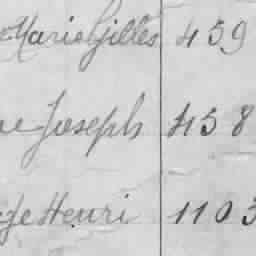 Marie Gilles 459
Joseph 458
Henri 1103